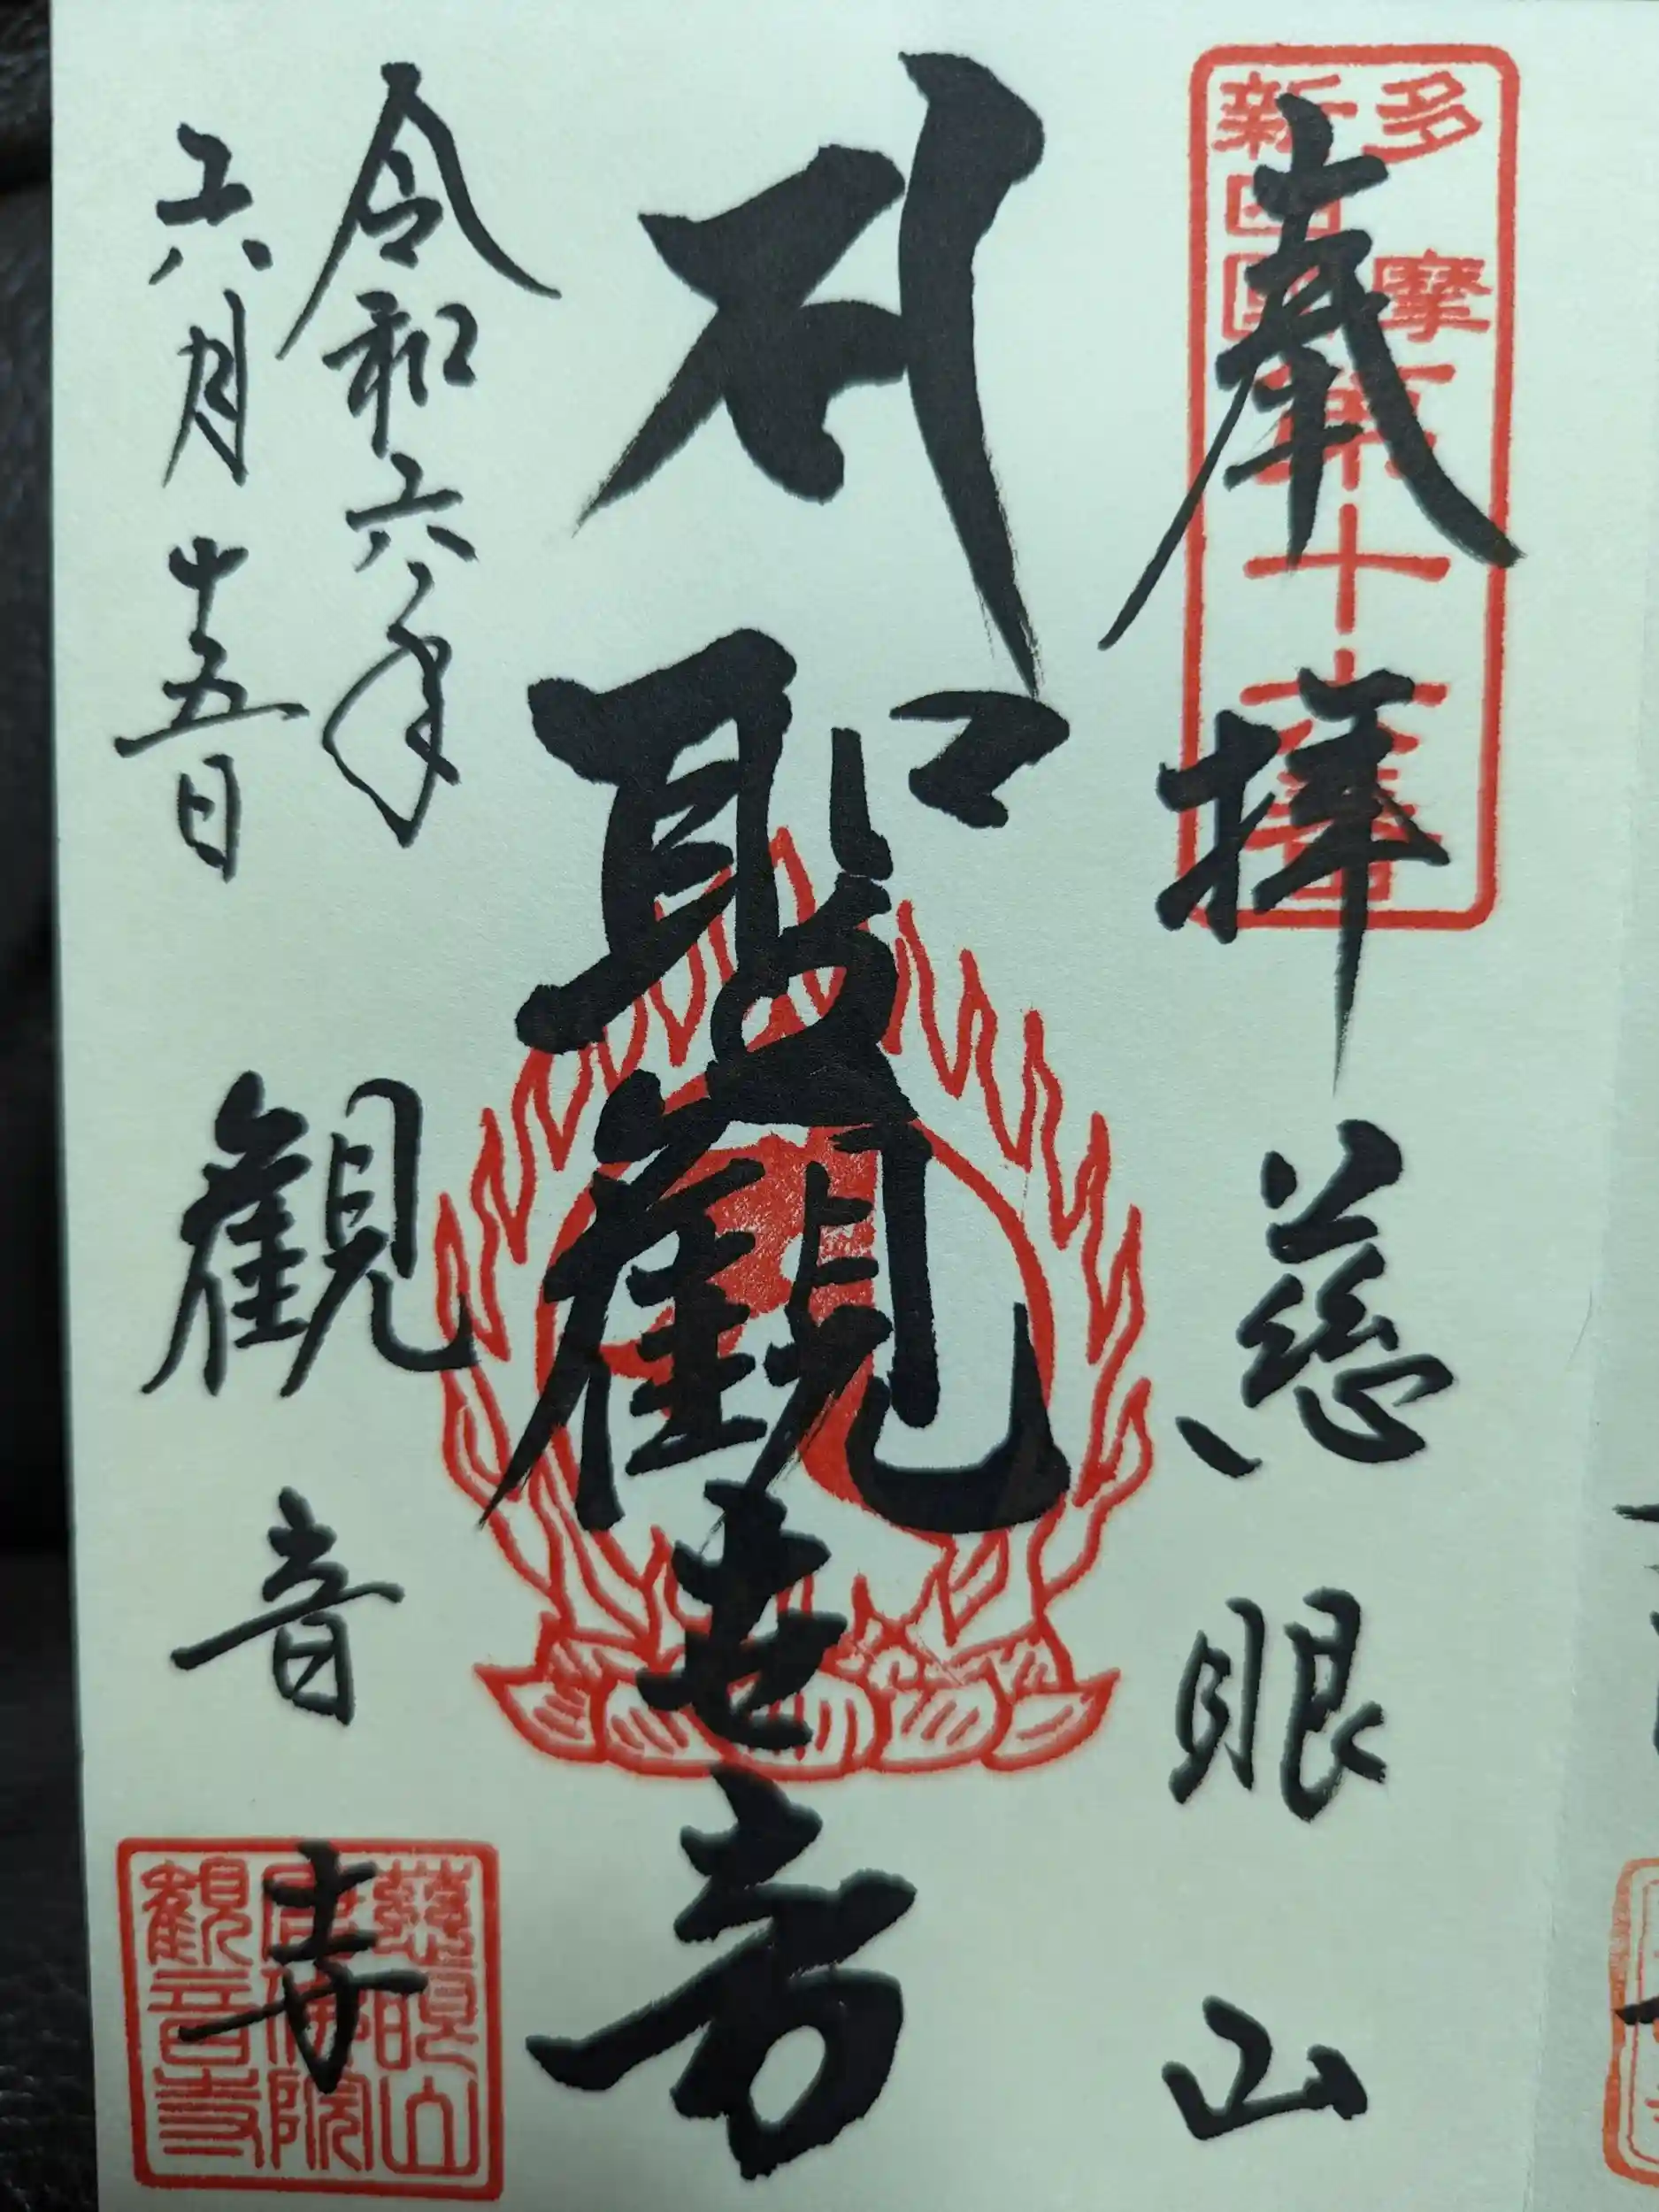 奉拝 慈眼山
多摩
新四國
第十
聖観世音
令和六年
六月十五日
観音寺
慈眼山
唐佛院
観音寺